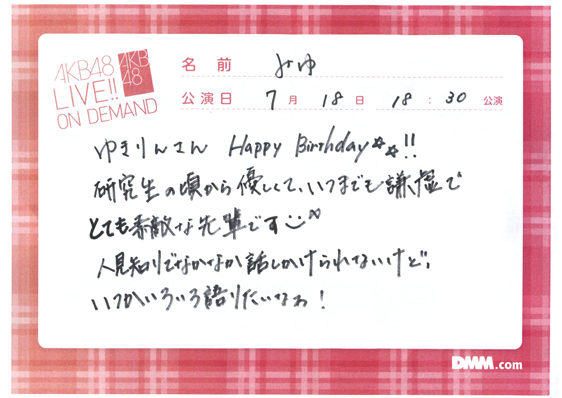 AKB48
LIVE!!
ON DEMAND
AKB
48
名前 みゆ
公演日 7月18日 18:30公演
ゆきりんさん Happy Birthday☆☆!!
研究生の頃から優しくて、いつまでも謙虚で
とても素敵な先輩です
人見知りでなかなか話しかけられないけど、
いつかいろいろ語りたいなぁ!
DMM.com